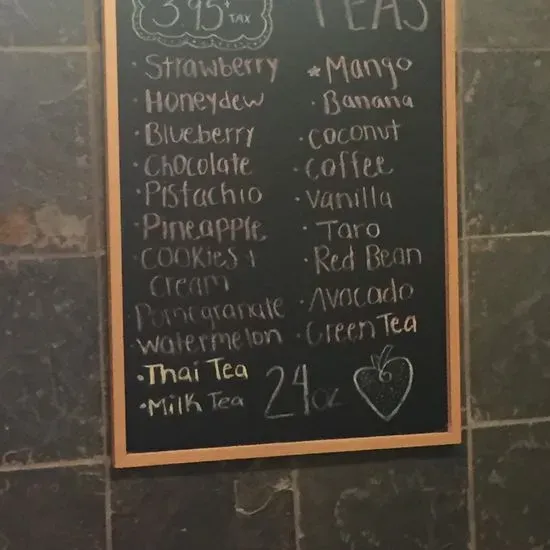 3.95 + TAX
TEAS
· Strawberry
· Honeydew
· Blueberry
· Chocolate
· Pistachio
· Pineapple
· COOKIES &
Cream
Pomegranate
· Watermelon
· Thai Tea
· Milk Tea
* Mango
· Banana
· coconut
· coffee
· Vanilla
· Taro
· Red Bean
· Avocado
· Green Tea
24oz